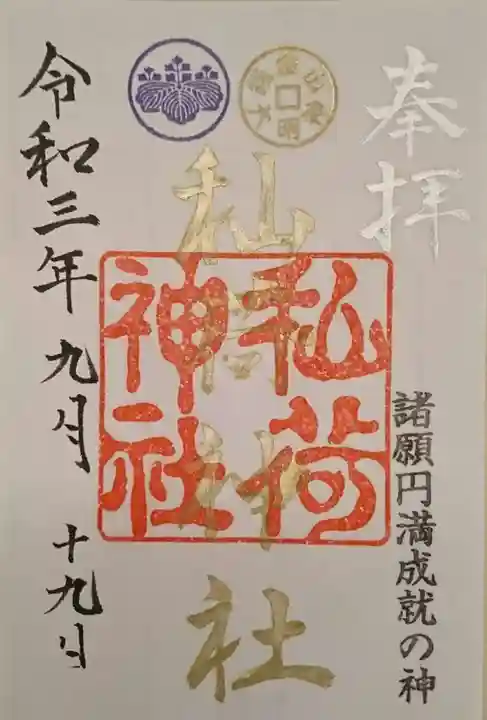 奉拝
諸願円満成就の神
秈荷神社
秈荷
神社
令和三年九月十九日